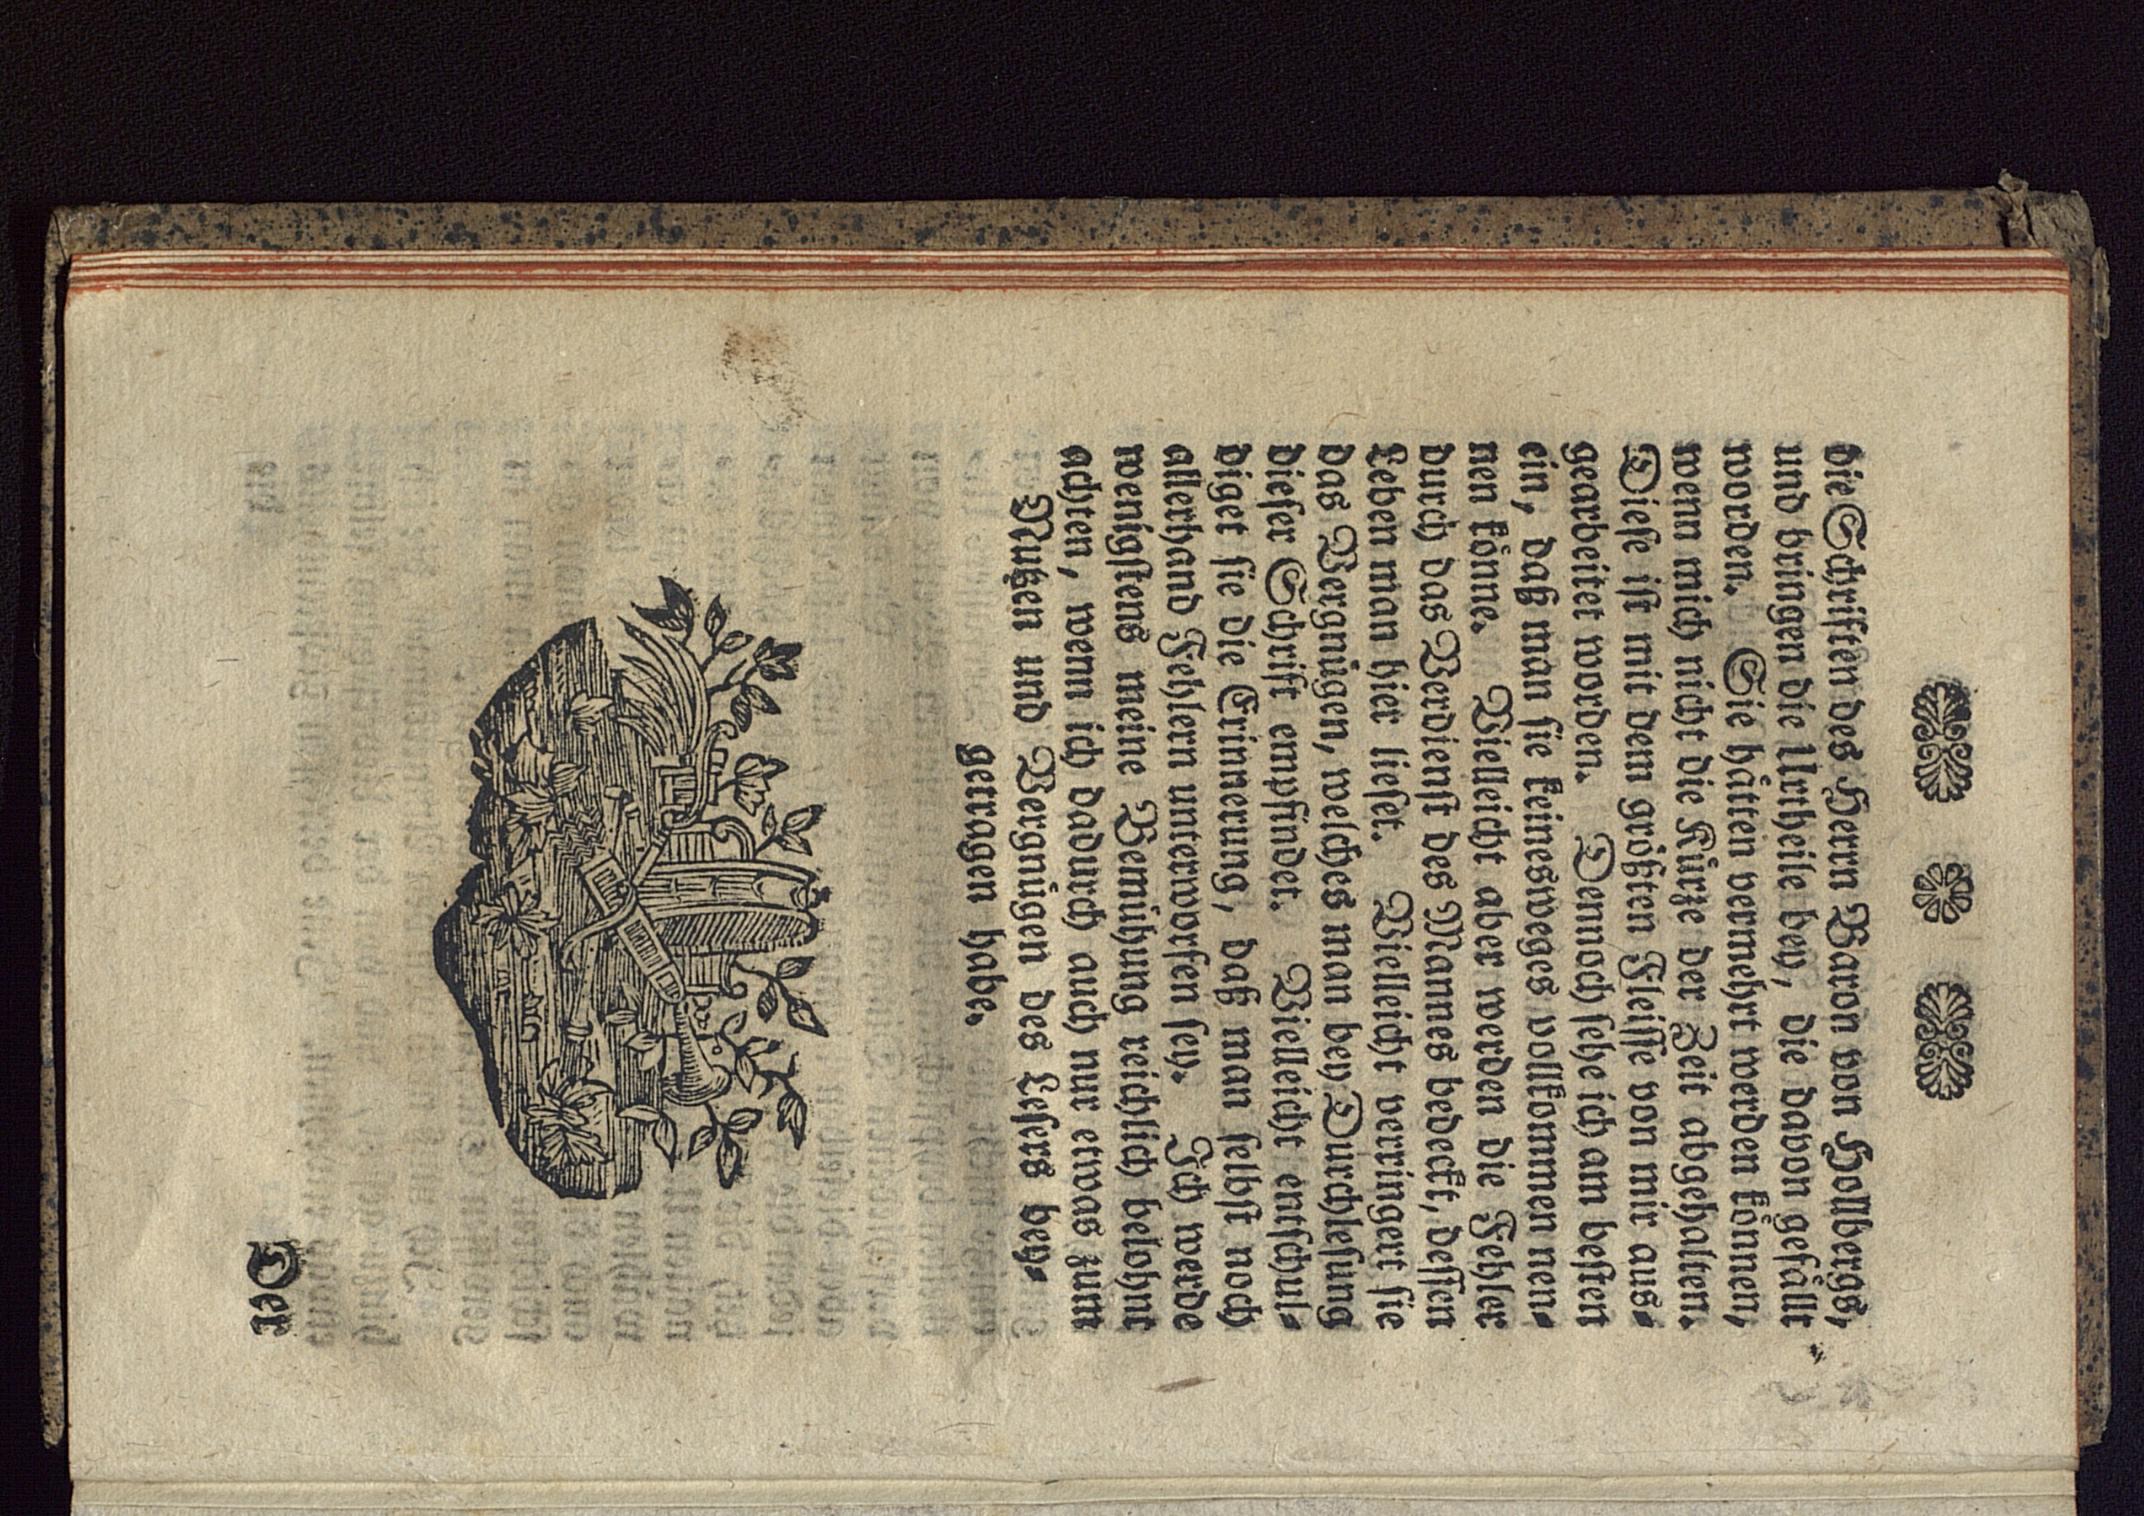 die Schrifften des Herrn Baron von Hollbergs,
und bringen die Urtheile bey, die davon gefällt
worden. Sie hätten vermehrt werden können,
wenn mich nicht die Kürtze der Zeit abgehalten.
Diese ist mit dem größten Fleisse von mir aus-
gearbeitet worden. Dennoch sehe ich am besten
ein, daß man sie keinesweges vollkommen nen-
nen könne. Vielleicht aber werden die Fehler
durch das Verdienst des Mannes bedeckt, dessen
Leben man hier lieset. Vielleicht verringert sie
das Vergnügen, welches man bey Durchlesung
dieser Schrift empfindet. Vielleicht entschul-
diget sie die Erinnerung, daß man selbst noch
allerhand Fehlern unterworfen sey. Ich werde
wenigstens meine Bemühung reichlich belohnt
achten, wenn ich dadurch auch nur etwas zum
Nutzen und Vergnügen des Lesers bey-
getragen habe.
Der